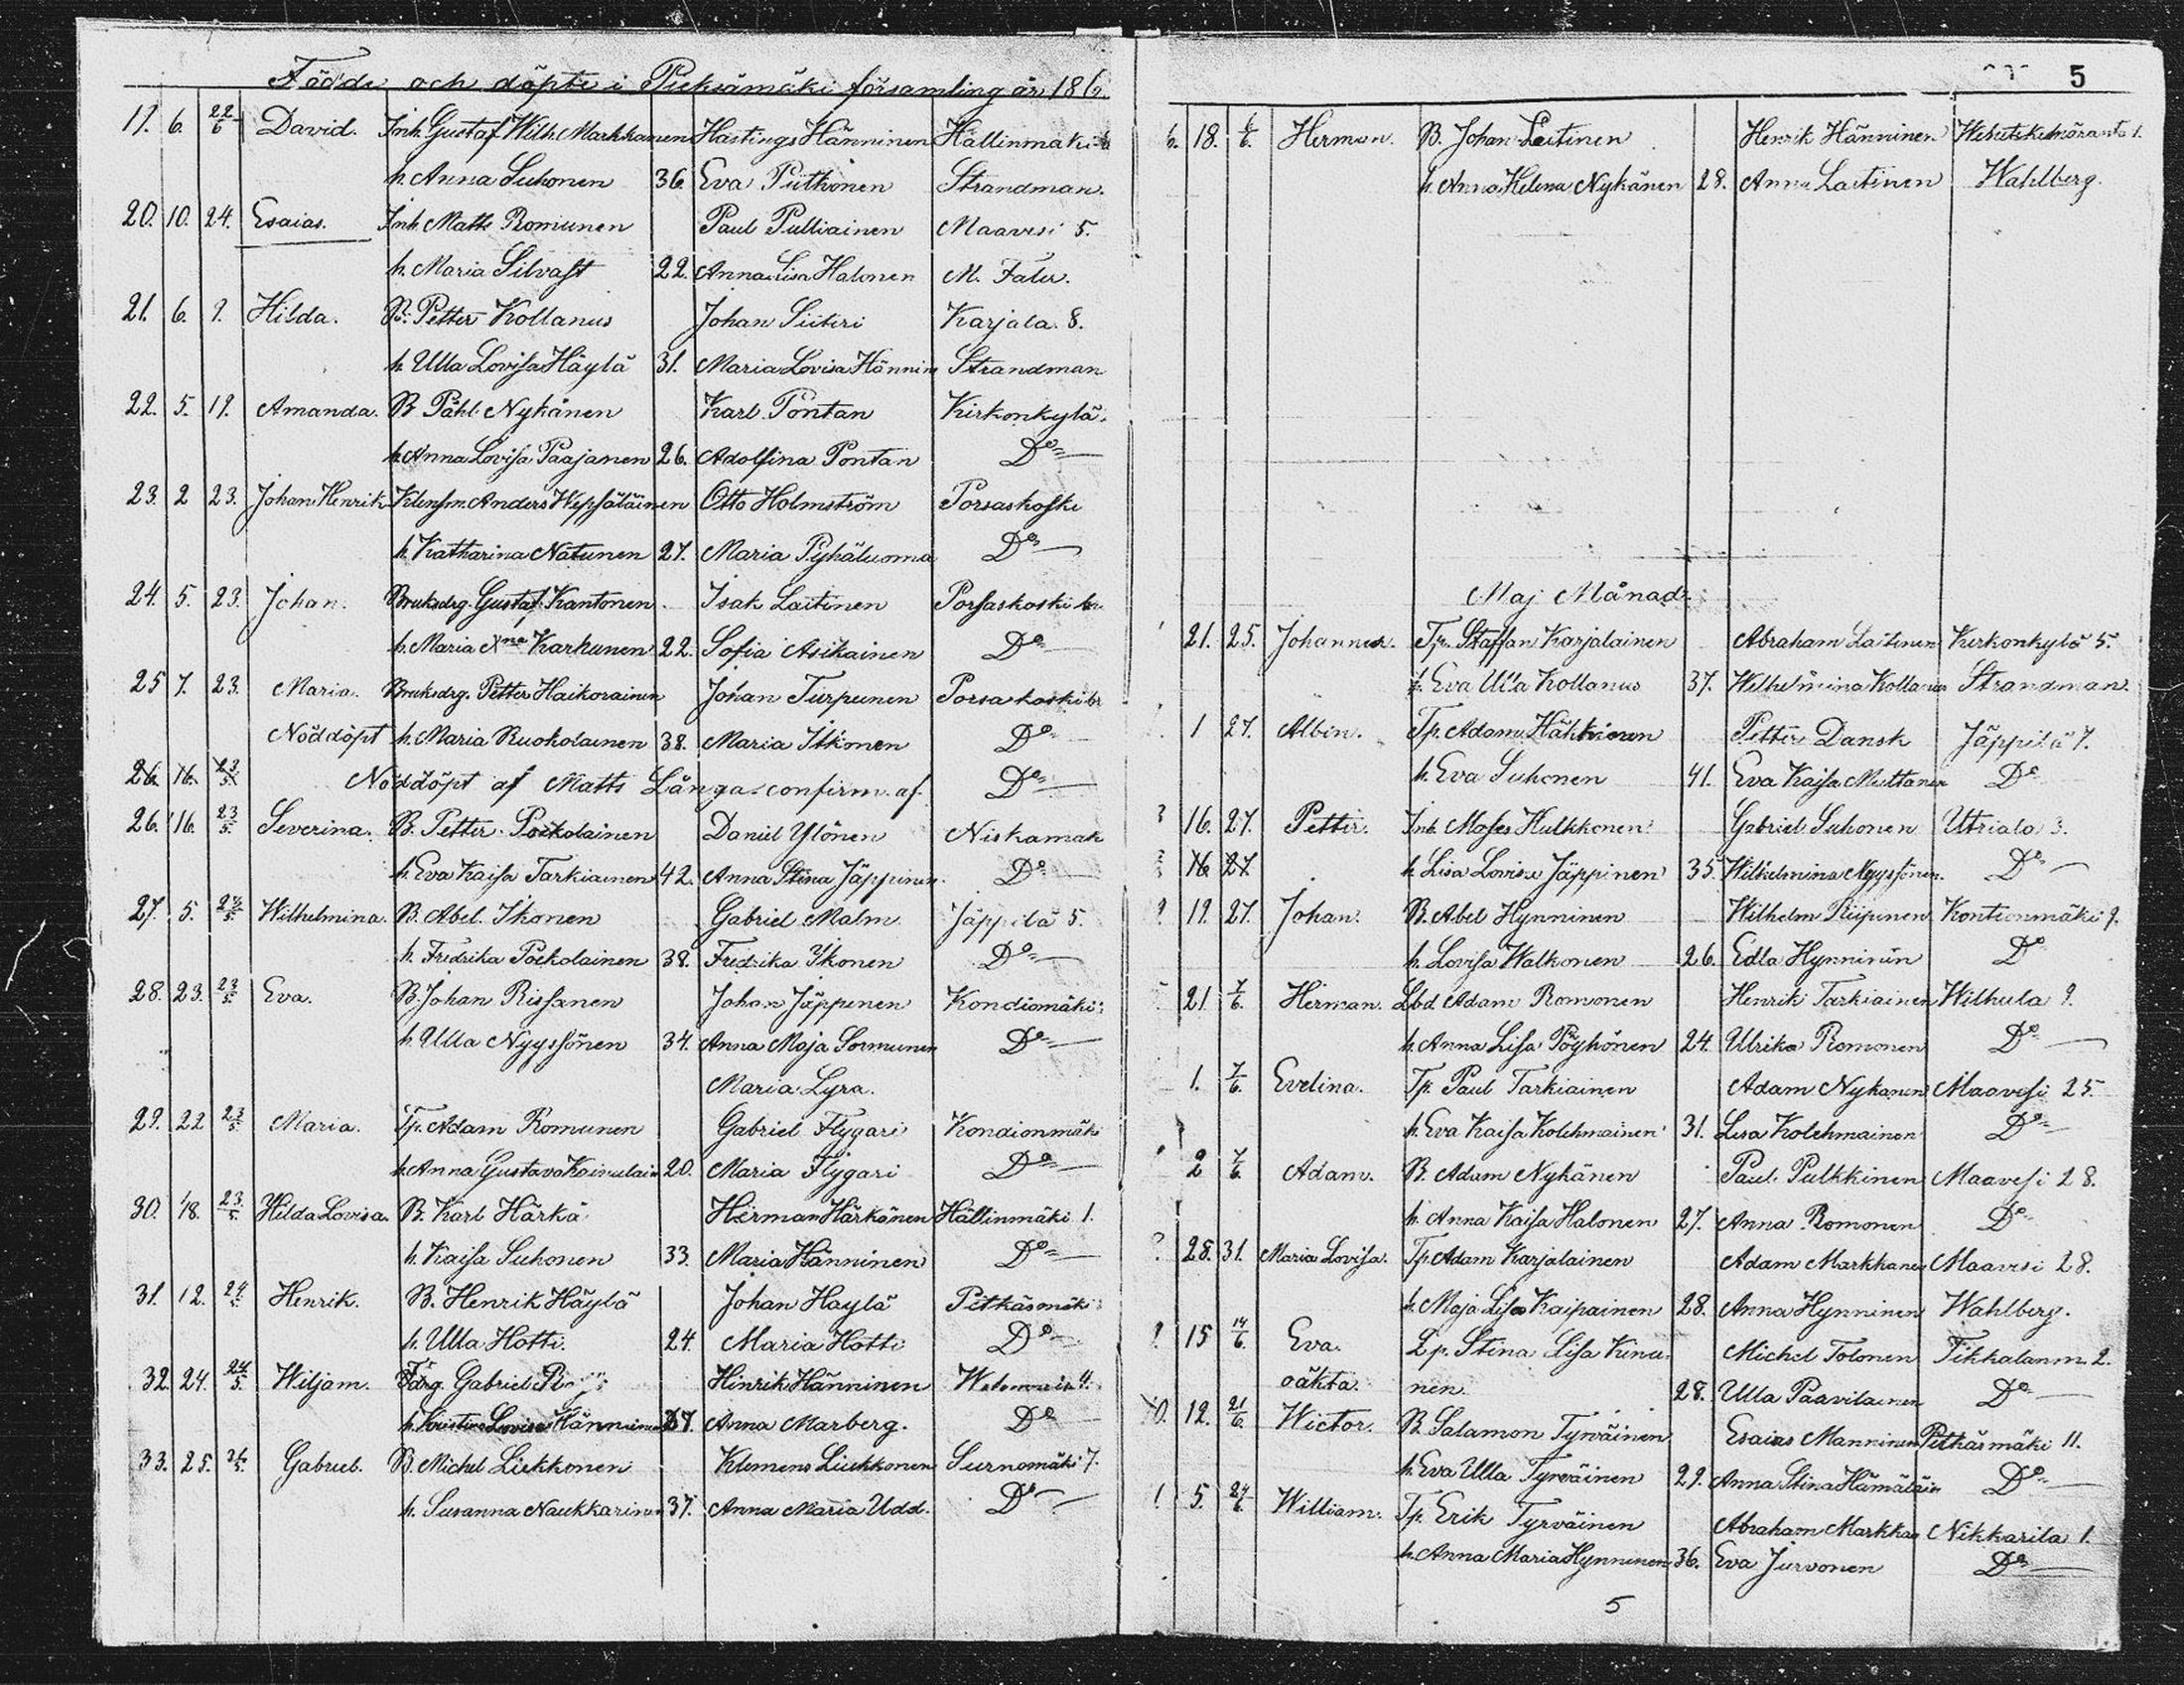 Födde och döpte i Pieksämäki församling år 186
19. 6. 22/6 David. Inh. Gustaf Wilh. Markkanen Hastings Hänninen Hällinmäki
h. Anna Suhonen 36. Eva Putkonen Strandman.
20. 10. 24. Esaias. Inh. Matts Romunen Paul Pulliainen Maavesi 5.
h. Maria Silvast 22. Anna Lisa Halonen M. Faler.
21. 6. 9. Hilda. B. Petter Kollanus Johan Siiteri Karjala. 8.
h. Ulla Lovisa Häylä 31. Maria Lovisa Hännin Strandman
22. 5. 19. Amanda. B Påhl Nykänen Karl Pontan Kirkonkylä.
h. Anna Lovisa Paajanen 26. Adolfina Pontan Do
23. 2 23. Johan Henrik Klensm. Anders Wepsäläinen Otto Holmström Porsaskoski
h. Katharina Natunen 27. Maria Pyhäluoma Do
24. 5. 23. Johan. Bruksdrg. Gustaf Kantonen. Isak Laitinen Porsaskoski br
h. Maria Xna Karhunen 22. Sofia Asikainen Do
25 7. 23. Maria. Bruksdrg. Petter Haikorainen Johan Turpunen Porsakoski br
Nöddöpt h. Maria Ruokolainen 38. Maria Itkonen Do
26. 16. 23/5. Nöddöpt af Matts Långa confirm. af. Do
26. 16. 23/5. Severina. B. Petter Poikolainen Daniel Ylönen Niskamäk
h. Eva Kaisa Tarkiainen 42. Anna Stina Jäppinen. Do
27. 5. 23/5. Wilhelmina. B. Abel Ikonen Gabriel Malm Jäppilä 5.
h. Fredrika Poikolainen 38. Fredrika Ikonen Do
28. 23. 23/5. Eva. B. Johan Rissanen Johan Jäppinen Kondiomäki
h. Ulla Nyyssönen 34. Anna Maja Sormunen Do
Maria Lyra.
29. 22 23/5. Maria. Tp. Adam Romunen Gabriel Flygari Kondionmäki
h. Anna Gustava Kainulain 20. Maria Flygari Do
30. 18. 23/5. Hilda Lovisa. B. Karl Härkä Herman Härkönen Hällinmäki 1.
h. Kaisa Suhonen 33. Maria Hänninen Do
31. 12. 24/5. Henrik. B. Henrik Häylä Johan Haylä Pitkäsmäki
h. Ulla Hotti. 24. Maria Hotti Do
32. 24. 24/5. Wiljam. Gabriel Hinrik Hänninen 4.
h. Lovisa Hänninen 37. Anna Marberg. Do
33. 25. Gabriel. B. Michel Liekkonen Klemens Liukkonen Surnomäki 7.
h. Susanna Naukkarinen 37. Anna Maria Udd. Do
5
6. 18. 6/6. Herman. B. Johan Laitinen Henrik Hänninen 1.
h. Anna Helena Nykänen 28. Anna Laitinen Wahlberg.
Maj Månad.
21. 25. Johannes. Tp. Staffan Karjalainen Abraham Laitinen Kirkonkylä 5.
h. Eva Ulla Kollanus 37. Wilhelmina Kollanus Strandman.
1 27. Albin. Tp. Adam Hähkiönen Petter Dansk Jäppilä 7.
h. Eva Suhonen 41. Eva Kaisa Mustanen Do
16. 27. Petter. Inh. Moses Hulkkonen Gabriel Suhonen Utriala 3.
16 27 h. Lisa Lovisa Jäppinen 35. Wilhelmina Nyyssönen. Do
19. 27. Johan. B. Abel Hynninen Wilhelm Riipinen Kontionmäki 9.
h. Lovisa Walkonen 26. Edla Hynninen Do
21 7/6. Herman. Lbd Adam Romonen Henrik Tarkiainen Wilhula 9.
h. Anna Lisa Pöyhönen 24. Ulrika Romonen Do
1. 7/6. Evelina. Tp. Paul Tarkiainen Adam Nykänen Maavesi 25.
h. Eva Kaisa Kolehmainen 31. Lisa Kolehmainen Do
2 7/6. Adam. B. Adam Nykänen Paul Pulkkinen Maavesi 28.
h. Anna Kaisa Halonen 27. Anna Romonen Do
28. 31. Maria Lovisa. Tp. Adam Karjalainen Adam Markkanen Maavesi 28.
h. Maja Lisa Kaipainen 28. Anna Hynninen Wahlberg.
15 14/6. Eva. Lp. Stina Lisa Kinu- Michel Tolonen Tikkalanm. 2.
oäkta. nen 28. Ulla Paavilainen Do
12. 21/6. Wictor. B Salamon Tyrväinen Esaias Manninen Pitkäsmäki 11.
h. Eva Ulla Tyrväinen 29. Anna Stina Hämäläin Do
5. 24/6. William. Tp. Erik Tyrväinen Abraham Markka Nikkarila 1.
h. Anna Maria Hynninen 36. Eva Jurvonen Do
5